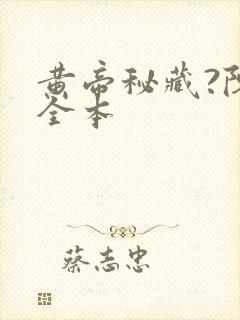 黄帝秘藏?
全本
蔡志忠